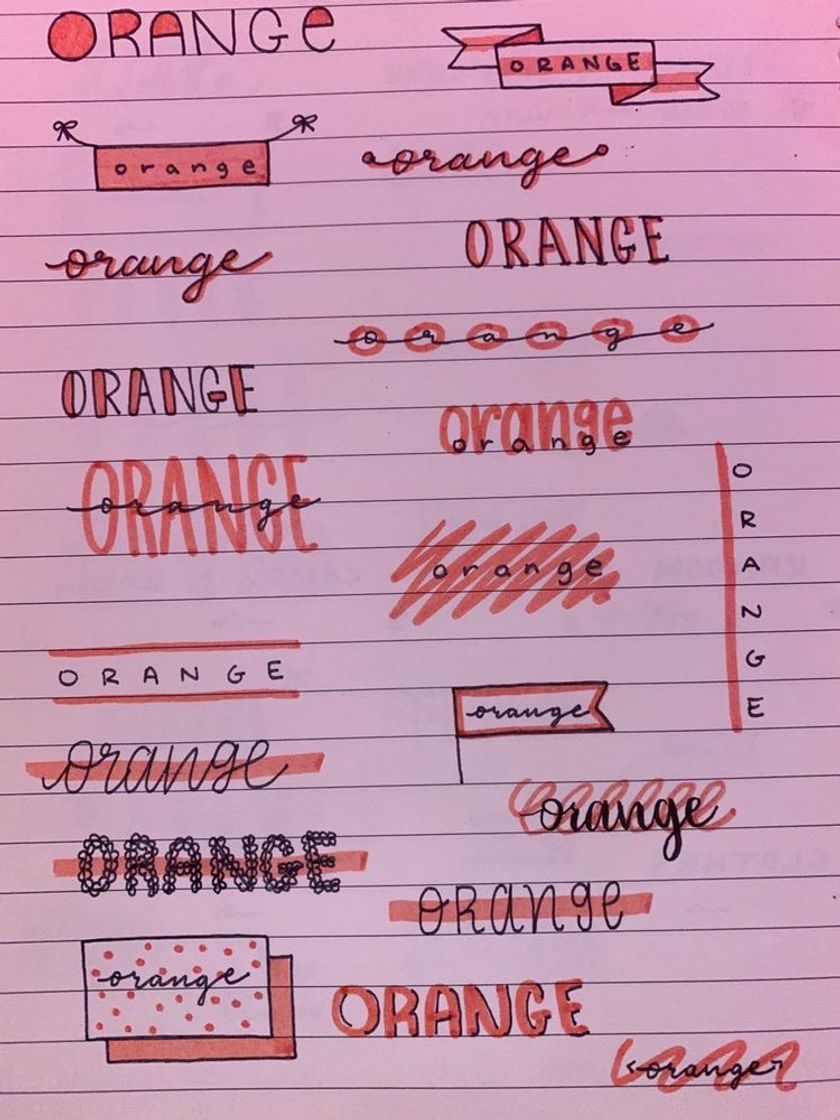 ORANGe
ORANGE
orange
orange
ORANGE
orange
orange
ORANGE
orange
orange
ORANGE
orange
ORANGE
orange
ORANGE
orange
orange
orange
ORANGE
oRange
orange
ORANGE
orange